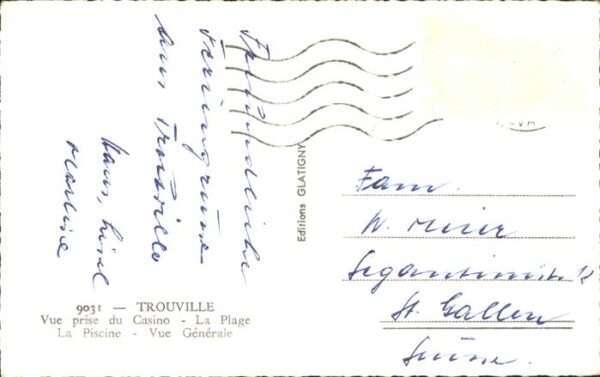 Freundliche
Feriengrüsse
aus Trouville
Hans, Liesel
9031 — TROUVILLE
Vue prise du Casino - La Plage
La Piscine - Vue Générale
Editions GLATIGNY
Fam.
W. Meier
St. Gallen
Suisse.